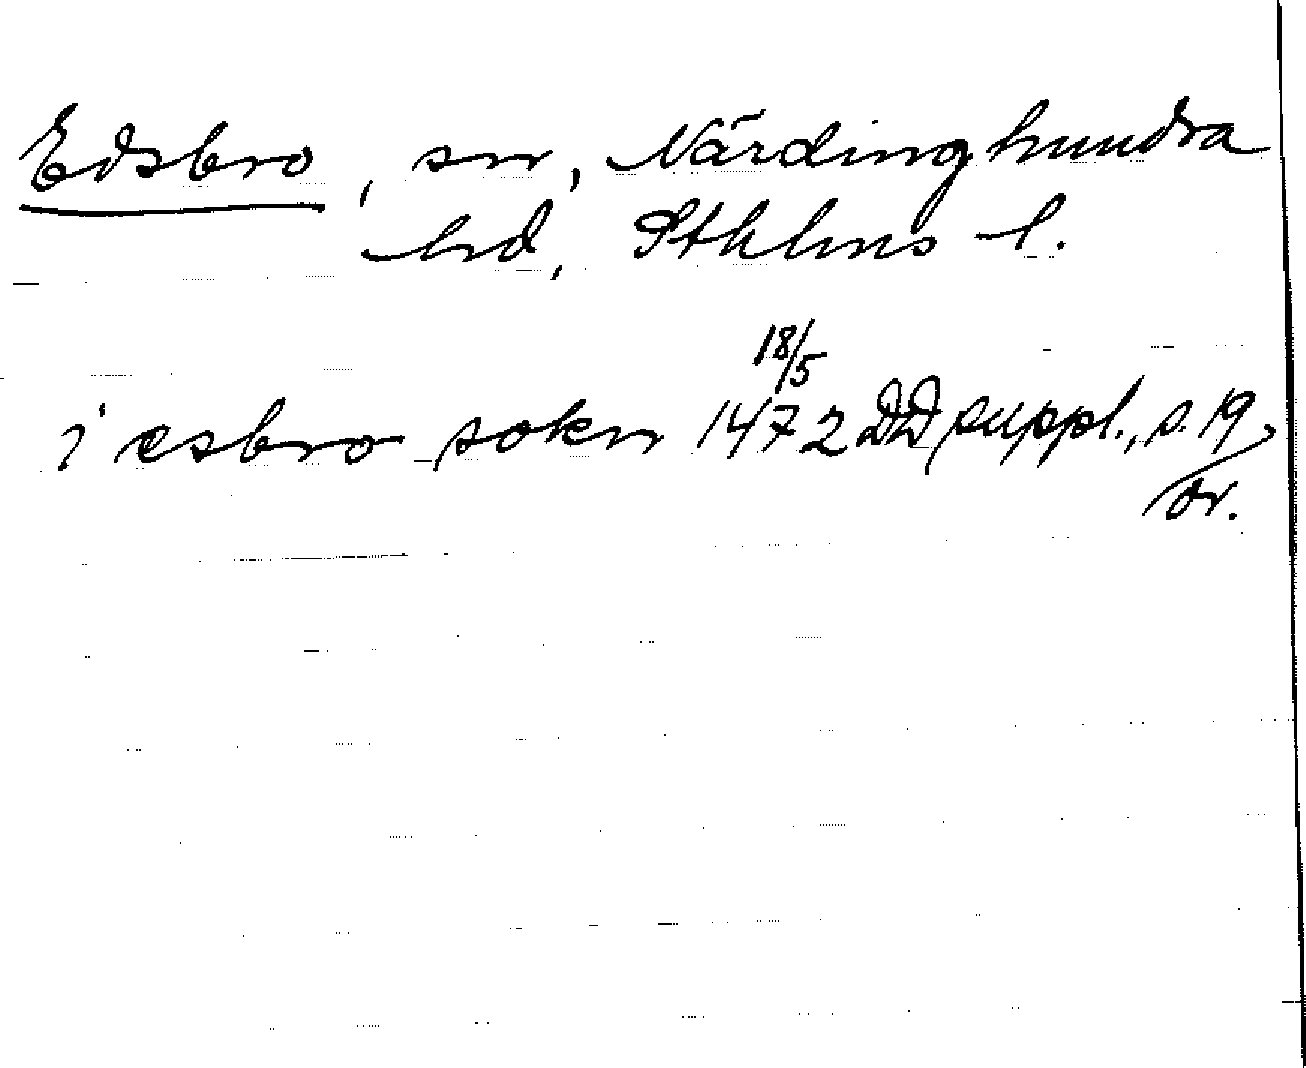 Edsbro, sn, Närdinghundra
hd, Sthlms l.
i esbro sokn 1472 18/5 DD suppl., s. 19,
or.